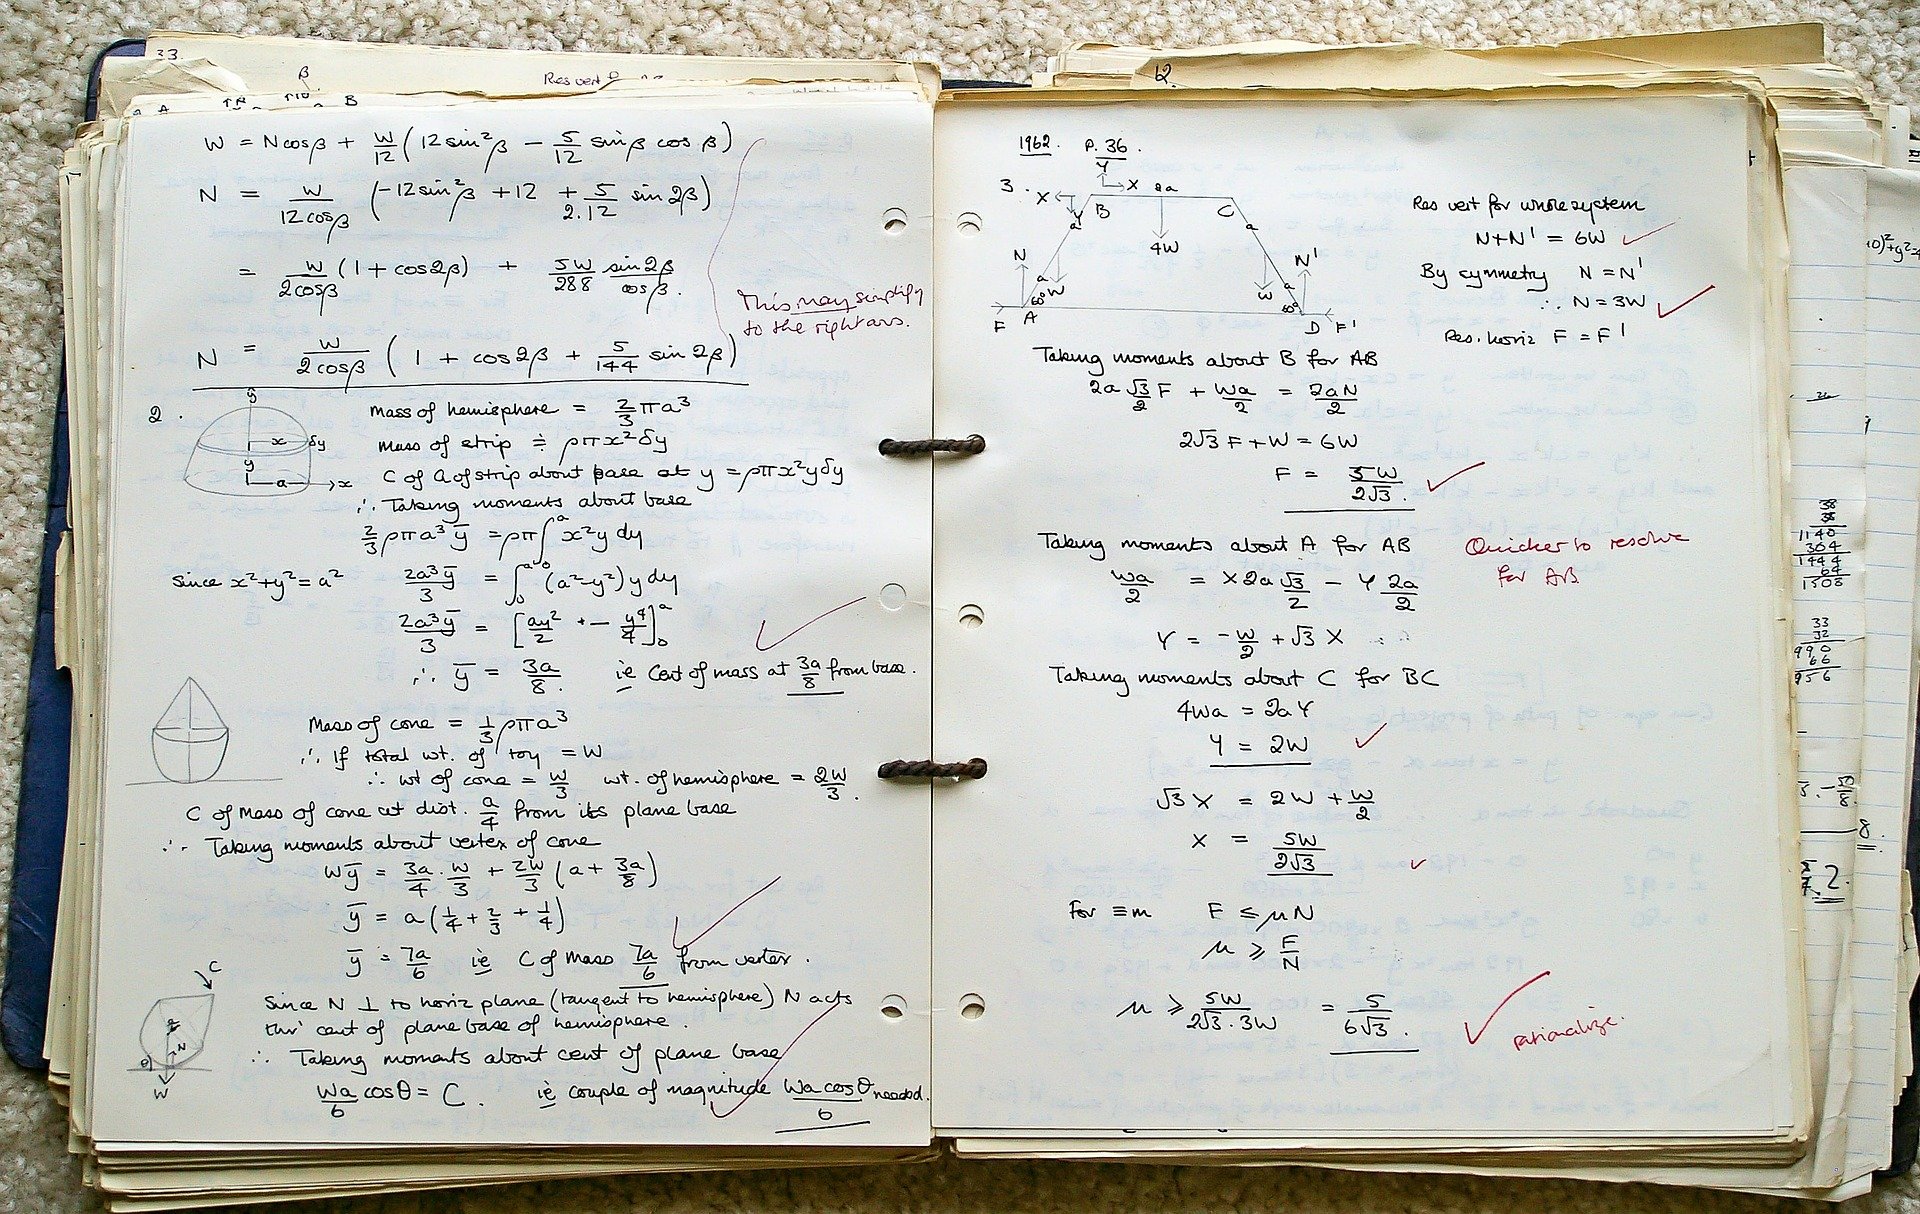 33.
β
Res vert
A
B
W = Ncosβ + W/12 (12sin²β − 5/12 sinβ cosβ)
N = W/12cosβ (−12sin²β + 12 + 5/2.12 sin2β)
= W/2cosβ (1 + cos2β) + 5W/288 sin2β/cosβ.
This may simplify
to the right ans.
N = W/2cosβ (1 + cos2β + 5/144 sin2β)
2.
x
δy
y
a
x
Mass of hemisphere = 2/3 πa³
Mass of strip ≑ ρπx²δy
C of G of strip about base at y = ρπx²yδy
∴ Taking moments about base
2/3 ρπa³ȳ = ρπ∫ᵃ₀ x²y dy
Since x²+y²=a² 2a³ȳ/3 = ∫ᵃ₀ (a²−y²) y dy
2a³ȳ/3 = [ay²/2 − y⁴/4]ᵃ₀
∴ ȳ = 3a/8. ie Cent of mass at 3a/8 from base.
Mass of cone = 1/3 ρπa³
∴ If total wt. of toy = W
∴ wt of cone = W/3 wt. of hemisphere = 2W/3.
C of Mass of cone at dist. a/4 from its plane base
∴ Taking moments about vertex of cone
Wȳ = 3a/4 . W/3 + 2W/3 (a + 3a/8)
ȳ = a(1/4 + 2/3 + 1/4)
ȳ = 7a/6 ie C of Mass 7a/6 from vertex.
C
N
θ
W
Since N ⊥ to horiz plane (tangent to hemisphere) N acts
thr' cent of plane base of hemisphere.
∴ Taking moments about cent of plane base
Wa/6 cosθ = C. ie couple of magnitude Wa cosθ/6 needed.
12
1962. P. 36.
3.
Y
X
X
Y
2a
B
C
a
a
4W
N
N'
a
W
W
a
60°
60°
F
A
D
F'
Res vert for whole system
N+N' = 6W
By symmetry N = N'
∴ N = 3W
Res. horiz F = F'
Taking moments about B for AB
2a √3/2 F + Wa/2 = 2aN/2
2√3 F + W = 6W
F = 5W/2√3.
Taking moments about A for AB
Quicker to resolve
for AB
Wa/2 = X2a √3/2 − Y 2a/2
Y = −W/2 + √3 X
Taking moments about C for BC
4Wa = 2aY
Y = 2W
√3 X = 2W + W/2
X = 5W/2√3
For ≡m F ≤ μN
μ ≥ F/N
μ ≥ 5W/2√3.3W = 5/6√3.
rationalize.
38
38
1140
304
1444
64
1508
33
32
990
66
956
8.
2.